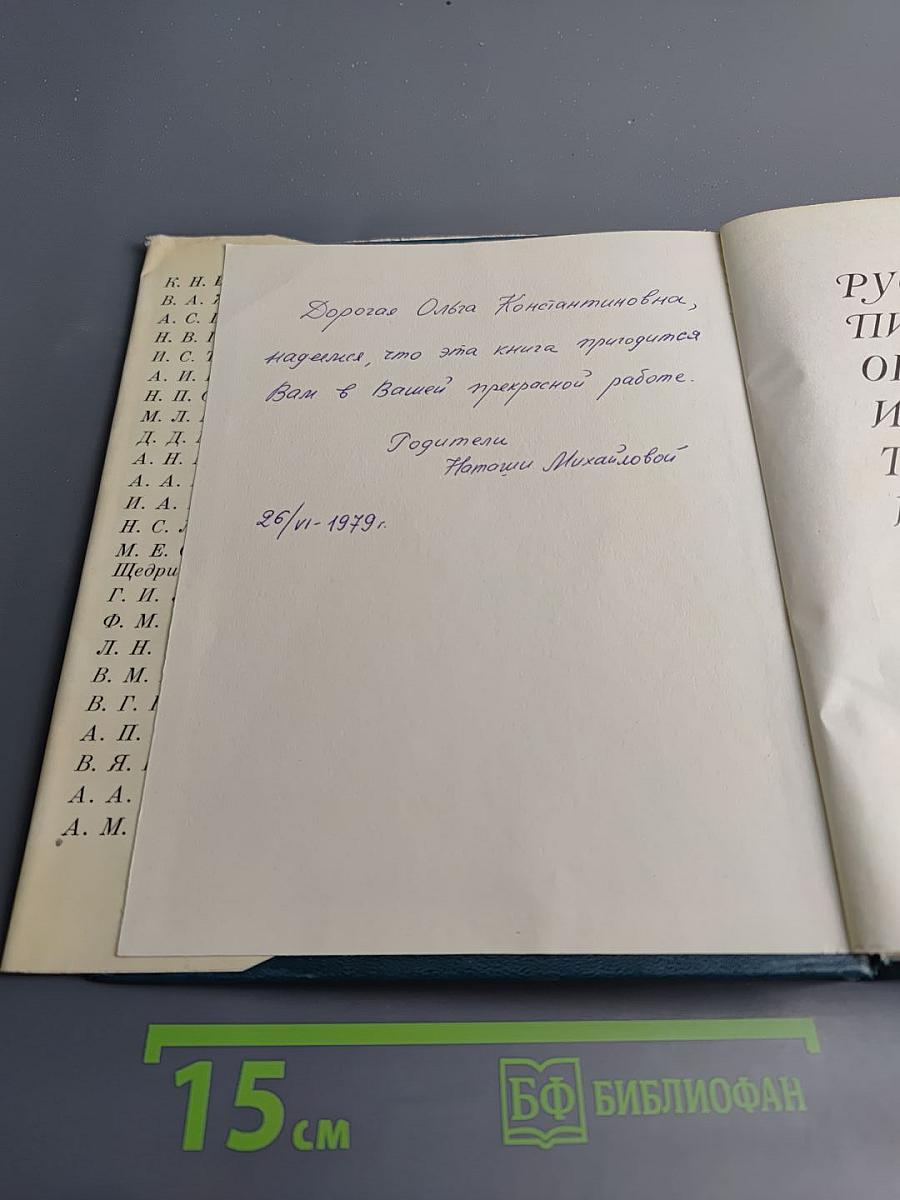 К. Н.
В. А.
А. С.
Н. В.
И. С.
А. И.
Н. П.
М. Л.
Д. Д.
А. Н.
А. А.
И. А.
Н. С.
М. Е.
Щедри
Г. И.
Ф. М.
Л. Н.
В. М.
В. Г.
А. П.
В. Я.
А. А.
А. М.
Дорогая Ольга Константиновна,
надеемся, что эта книга пригодится
Вам в Вашей прекрасной работе.
Родители
Наташи Михайловой
26/VI-1979г.
РУ
ПИ
О
И
Т
15 см
БФ БИБЛИОФАН